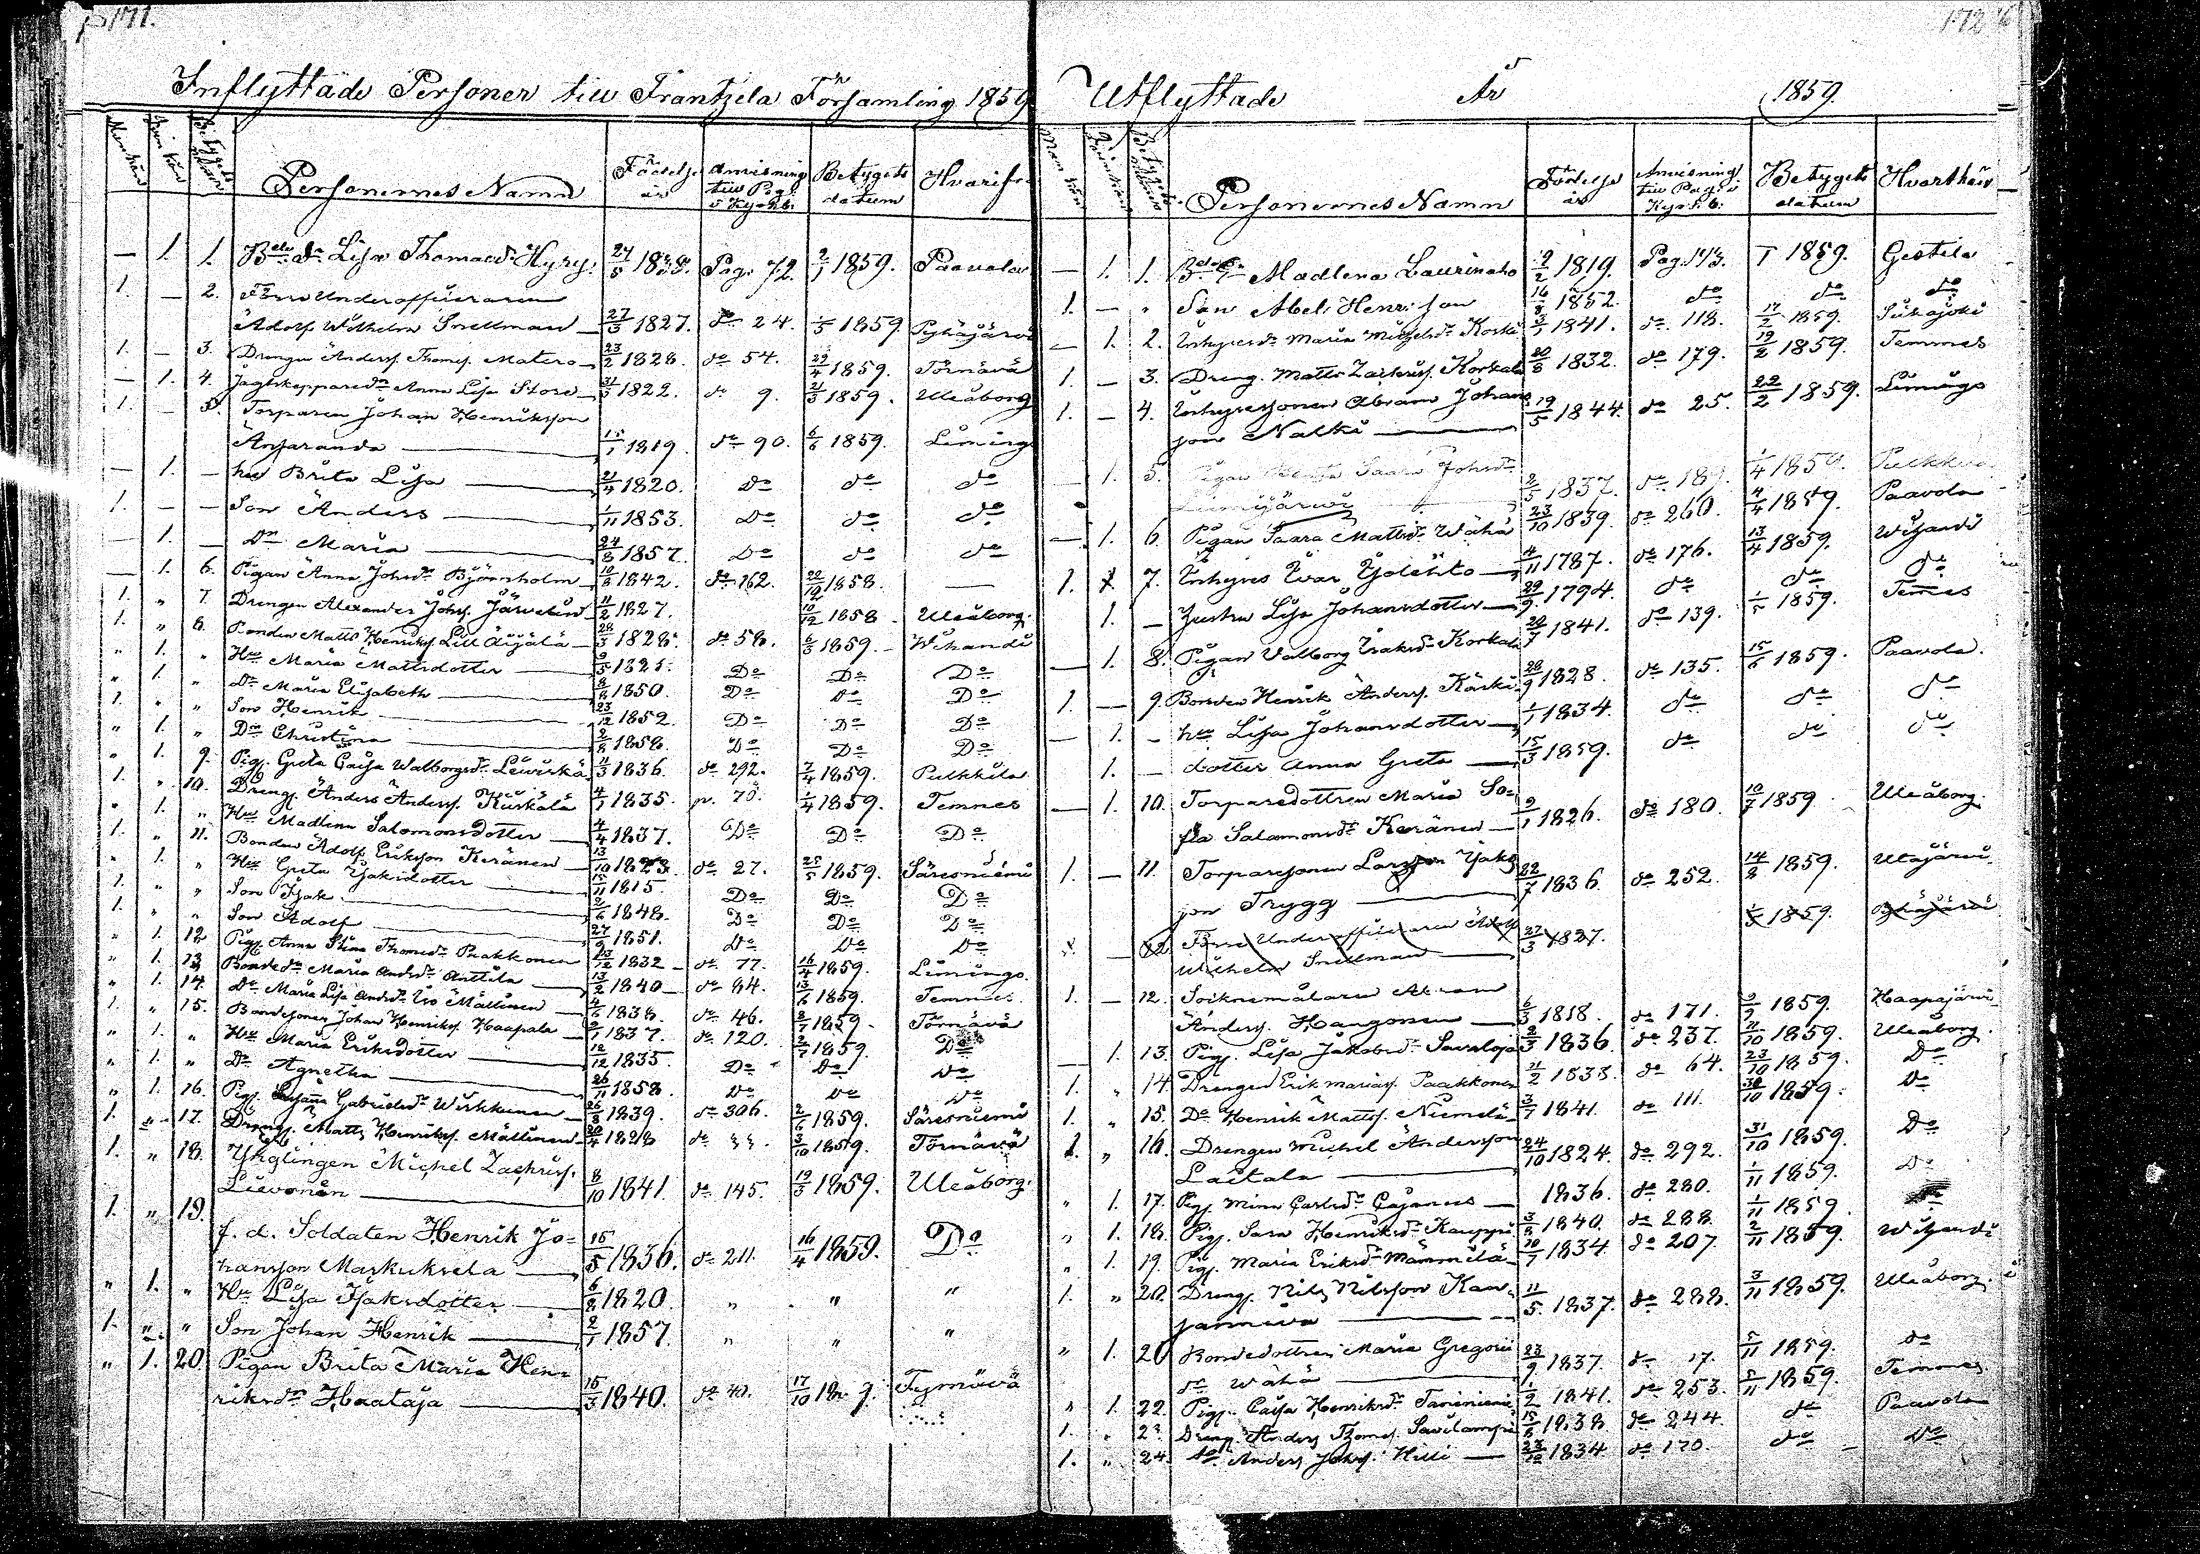 171.
Inflyttade Personer till Frantzila Församling 1859
Mankön Qvinkön Betygets nummer Personernes Namn Födelse år Anvisning till Pag. i Kyrkb. Betygets datum Hvarifrån
— 1. 1. Bonded:r Lisa Thomasd:r Hyry. 24/5 Pag. 72. 2/1 1859. Paavola
1. — 2. Förre Underofficeraren
Adolf Wilhelm Snellman — 27/3 1827. do 24. 1/5 1859. Pyhäjärvi
1. — 3. Drengen Anders Thomes. Matero — 23/2 1828. do 54. 29/4 1859. Törnävä
— 1. 4. Jagtskeppared:r Anna Lisa Store — 31/3 1822. do 9. 21/3 1859. Uleåborg
1. — 5. Torparen Johan Henriksson
Ansaranda — 15/1 1819. do 90. 6/6 1859. Liminga
— 1. — hu Brita Lisa — 21/4 1820. do do do
1. — — Son Anders — 1/11 1853. Do do do
— 1. — Dr Maria — 24/8 1857. Do do do
— 1. 6. Pigan Anna Johsd:r Björnholm — 10/8 1842. do 162. 22/12 1858. —
1. " 7. Drengen Alexander Johs. Järvelin — 11/2 1827. 10/12 1858 Uleåborg
1. " 8. Bonden Matts Henriks. Lill Äijälä — 28/3 1828. do 58. 6/5 1859. Wihandi
" 1. " Hu Maria Mattsdotter — Do Do Do
" 1. " Dr Maria Elisabeth — 8/8 1850. Do Do Do
1. " " Son Henrik — 23/12 1852. Do Do Do
" 1. " Dr Christina — 2/8 1858. Do Do Do
" 1. 9. Pig. Greta Caisa Walborgsd:r Lewiskä 11/3 1836. do 292. 7/4 1859. Pulkkila
1. " 10. Dreng. Anders Anders. Kiiskilä 4/1 1835. p. 70. 1/4 1859. Temnes
" 1. " Hu Madlena Salomonsdotter — 4/4 1837. Do Do Do
1. " 11. Bonden Adolf Eriksson Keränen — 13/10 1823. do 27. 25/5 1859. Säresniemi
" 1. " Hu Greta Isaksdotter — 15/11 1815 Do Do Do
1. " " Son Isak — 2/6 1848. Do Do Do
1. " " Son Adolf — 27/9 1851. Do Do Do
" 1. 12 Pig. Anna Stina Thomasd:r Paakkonen 1832 do 77. 16/4 1859. Limingo
" 1. 13. Bonded:r Maria Andersd:r Anttila — 13/2 1840 do 84. 13/6 1859. Temnes
" 1. 14. Dr Maria Lisa Andersd:r Iso Mällinen — 4/6 1838. do 46. 2/7 1859. Törnävä
1. " 15. Bondesonen Johan Henriks. Haapala — 2/1 1837. do 120. 2/7 1859. Do
" 1. " Hu Maria Eriksdotter — 12/12 1835. Do Do Do
" 1. " Dr Agnetha — 26/11 1858. Do Do Do
" 1. 16. Pig. Susanna Gabrielsd:r Wirkkunen 25/8 1839. do 306. 2/6 1859. Säresniemi
1. " 17. Dreng. Matts Henriks. Mällinen 20/4 1828 do 3/10 1859. Törnävä
1. " 18. Ynglingen Michel Zachris.
Lievonen — 8/10 1841. do 145. 19/3 1859. Uleåborg.
1. " 19. f. d. Soldaten Henrik Jo=
hansson Markuksela — 15/5 1836. do 211. 16/4 1859. Do
" 1. " Hu Lisa Isaksdotter — 6/8 1820 " " "
1. " " Son Johan Henrik — 2/1 1857 " " "
" 1. 20. Pigan Brita Maria Hen=
riksd:r Haataja — 15/3 1840. do 40. 17/10 Tyrnävä
172
Utflyttade År 1859.
Mankön Qvinkön Betygets nummer Personernes Namn Födelse år Anvisning till Pag. i Kyrk.b. Betygets datum Hvarthän
— 1. 1. Madlena Laurinaho 2/2 1819. Pag. 173. 1859. Gestila
1. — " Son Abel Henrisson 16/8 1852. do do do
— 1. 2. Inhyresd:r Maria Michelsd:r Koski 3/1 1841. do 118. 17/2 1859. Siikajoki
1. — 3. Dreng. Matts Zachris. Korkala 20/8 1832. do 179. 19/2 1859. Temmes
1. — 4. Inhyresonen Abram Johans
son Nalki — 19/5 1844. do 25. 22/2 1859. Limingo
— 1. 5. Pigan Saara Johsd:r
Liimijärvi 2/5 1837. do 189. 1/4 1859. Pulkkila
— 1. 6. Pigan Saara Mattsd:r Wähä 23/10 1839. do 260. 4/4 1859. Paavola
1. 7. Inhyres Ivar Ijolehto — 4/11 1787. do 176. 13/4 1859. Wihandi
1. — hustru Lisa Johansdotter — 29/9 1794. do do do
— 1. 8. Pigan Valborg Isaksd:r Korkala 28/7 1841. do 139. 1/5 1859. Temes
1. — 9. Bonden Henrik Anders. Käski 28/9 1828. do 135. 15/6 1859. Paavola.
— 1. — hu Lisa Johansdotter — 1/1 1834. do do do
1. — dotter Anna Greta — 15/3 1859. do do do
— 1. 10. Torparedottren Maria So=
fia Salamonsd:r Keränen — 2/1 1826. do 180. 10/7 1859 Uleåborg
1. — 11. Torparesonen Lars Isaks
son Trygg — 22/7 1836. do 252. 14/8 1859. Utajärvi
— 12. Förre Underofficeraren Adolf 1/5 1859. Pyhäjärvi
Wilhelm Snellman — 27/3 1827.
1. — 12. Socknemålaren Abram
Anders. Hangonen — 6/3 1818. do 171. 9/9 1859. Haapajärvi
— 1. 13. Pig. Lisa Jakobsd:r Savaloja 2/3 1836. do 237. 11/10 1859. Uleåborg.
1. " 14. Drengen Erik Marias. Paakkonen 11/2 1838. do 64. 23/10 1859. Do
1. " 15. Do Henrik Matts. Niemelä 3/7 1841. do 111. 30/10 1859. Do
1. " 16. Drengen Michel Andersson
Laitala — 24/10 1824. do 292. 31/10 1859. Do
" 1. 17. Pig. Mina Carlsd:r Cajanus — 1836. do 280. 1/11 1859. Do
" 1. 18. Pig. Sara Henriksd:r Kauppi 3/8 1840. do 288. 1/11 1859. Do
" 1. 19. Pig. Maria Eriksd:r Mämmilä 10/7 1834. do 207. 2/11 1859. Wihandi
1. " 20. Dreng. Nils Nilsson Kau=
janniva — 11/5 1837. do 288. 3/11 1859. Uleåborg.
" 1. 21 Bondedottren Maria Gregorii
dr Wähä — 23/9 1837. do 17. 5/11 1859. do
" 1. 22. Pig. Caisa Henriksd:r Tanieniemi 1/2 1841. do 253. 5/11 1859. Temmes
1. " 23. Dreng. Anders Thomes. Savilampi 15/6 1838 do 244. do Paavola
1. " 24. Do Anders Johs. Hilli — 1834. do 170. do Do